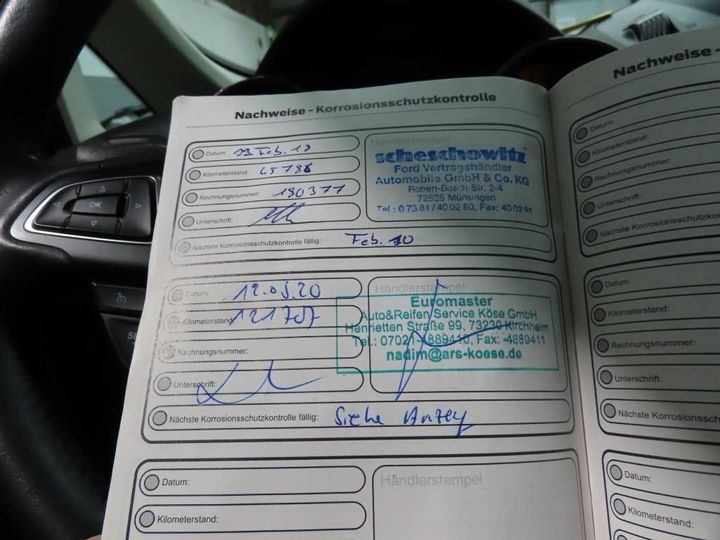 Nachweise - Korrosionsschutzkontrolle
Datum: 23. Feb. 18
Kilometerstand: 65786
Rechnungsnummer: 180377
Unterschrift:
Händlerstempel
scheschowitz
Ford Vertragshändler
Automobile GmbH & Co. KG
Robert-Bosch Str. 2-4
72525 Münsingen
Tel.: 07381/400260, Fax: 400291
Nächste Korrosionsschutzkontrolle fällig: Feb. 20
Datum: 12.05.20
Kilometerstand: 121707
Rechnungsnummer:
Unterschrift:
Händlerstempel
Euromaster
Auto&Reifen Service Köse GmbH
Henrietten Straße 99, 73230 Kirchheim
Tel.: 07021-4889410, Fax: -4889411
nadim@ars-koese.de
Nächste Korrosionsschutzkontrolle fällig: Siehe Anzey
Datum:
Kilometerstand:
Händlerstempel
Nachweise -
Datum:
Kilometerstand:
Rechnungsnummer:
Unterschrift:
Nächste Korrosionsschutzkon
Datum:
Kilometerstand:
Rechnungsnummer:
Unterschrift:
Nächste Korrosionssch
Datum:
Kilometerstand:
OK